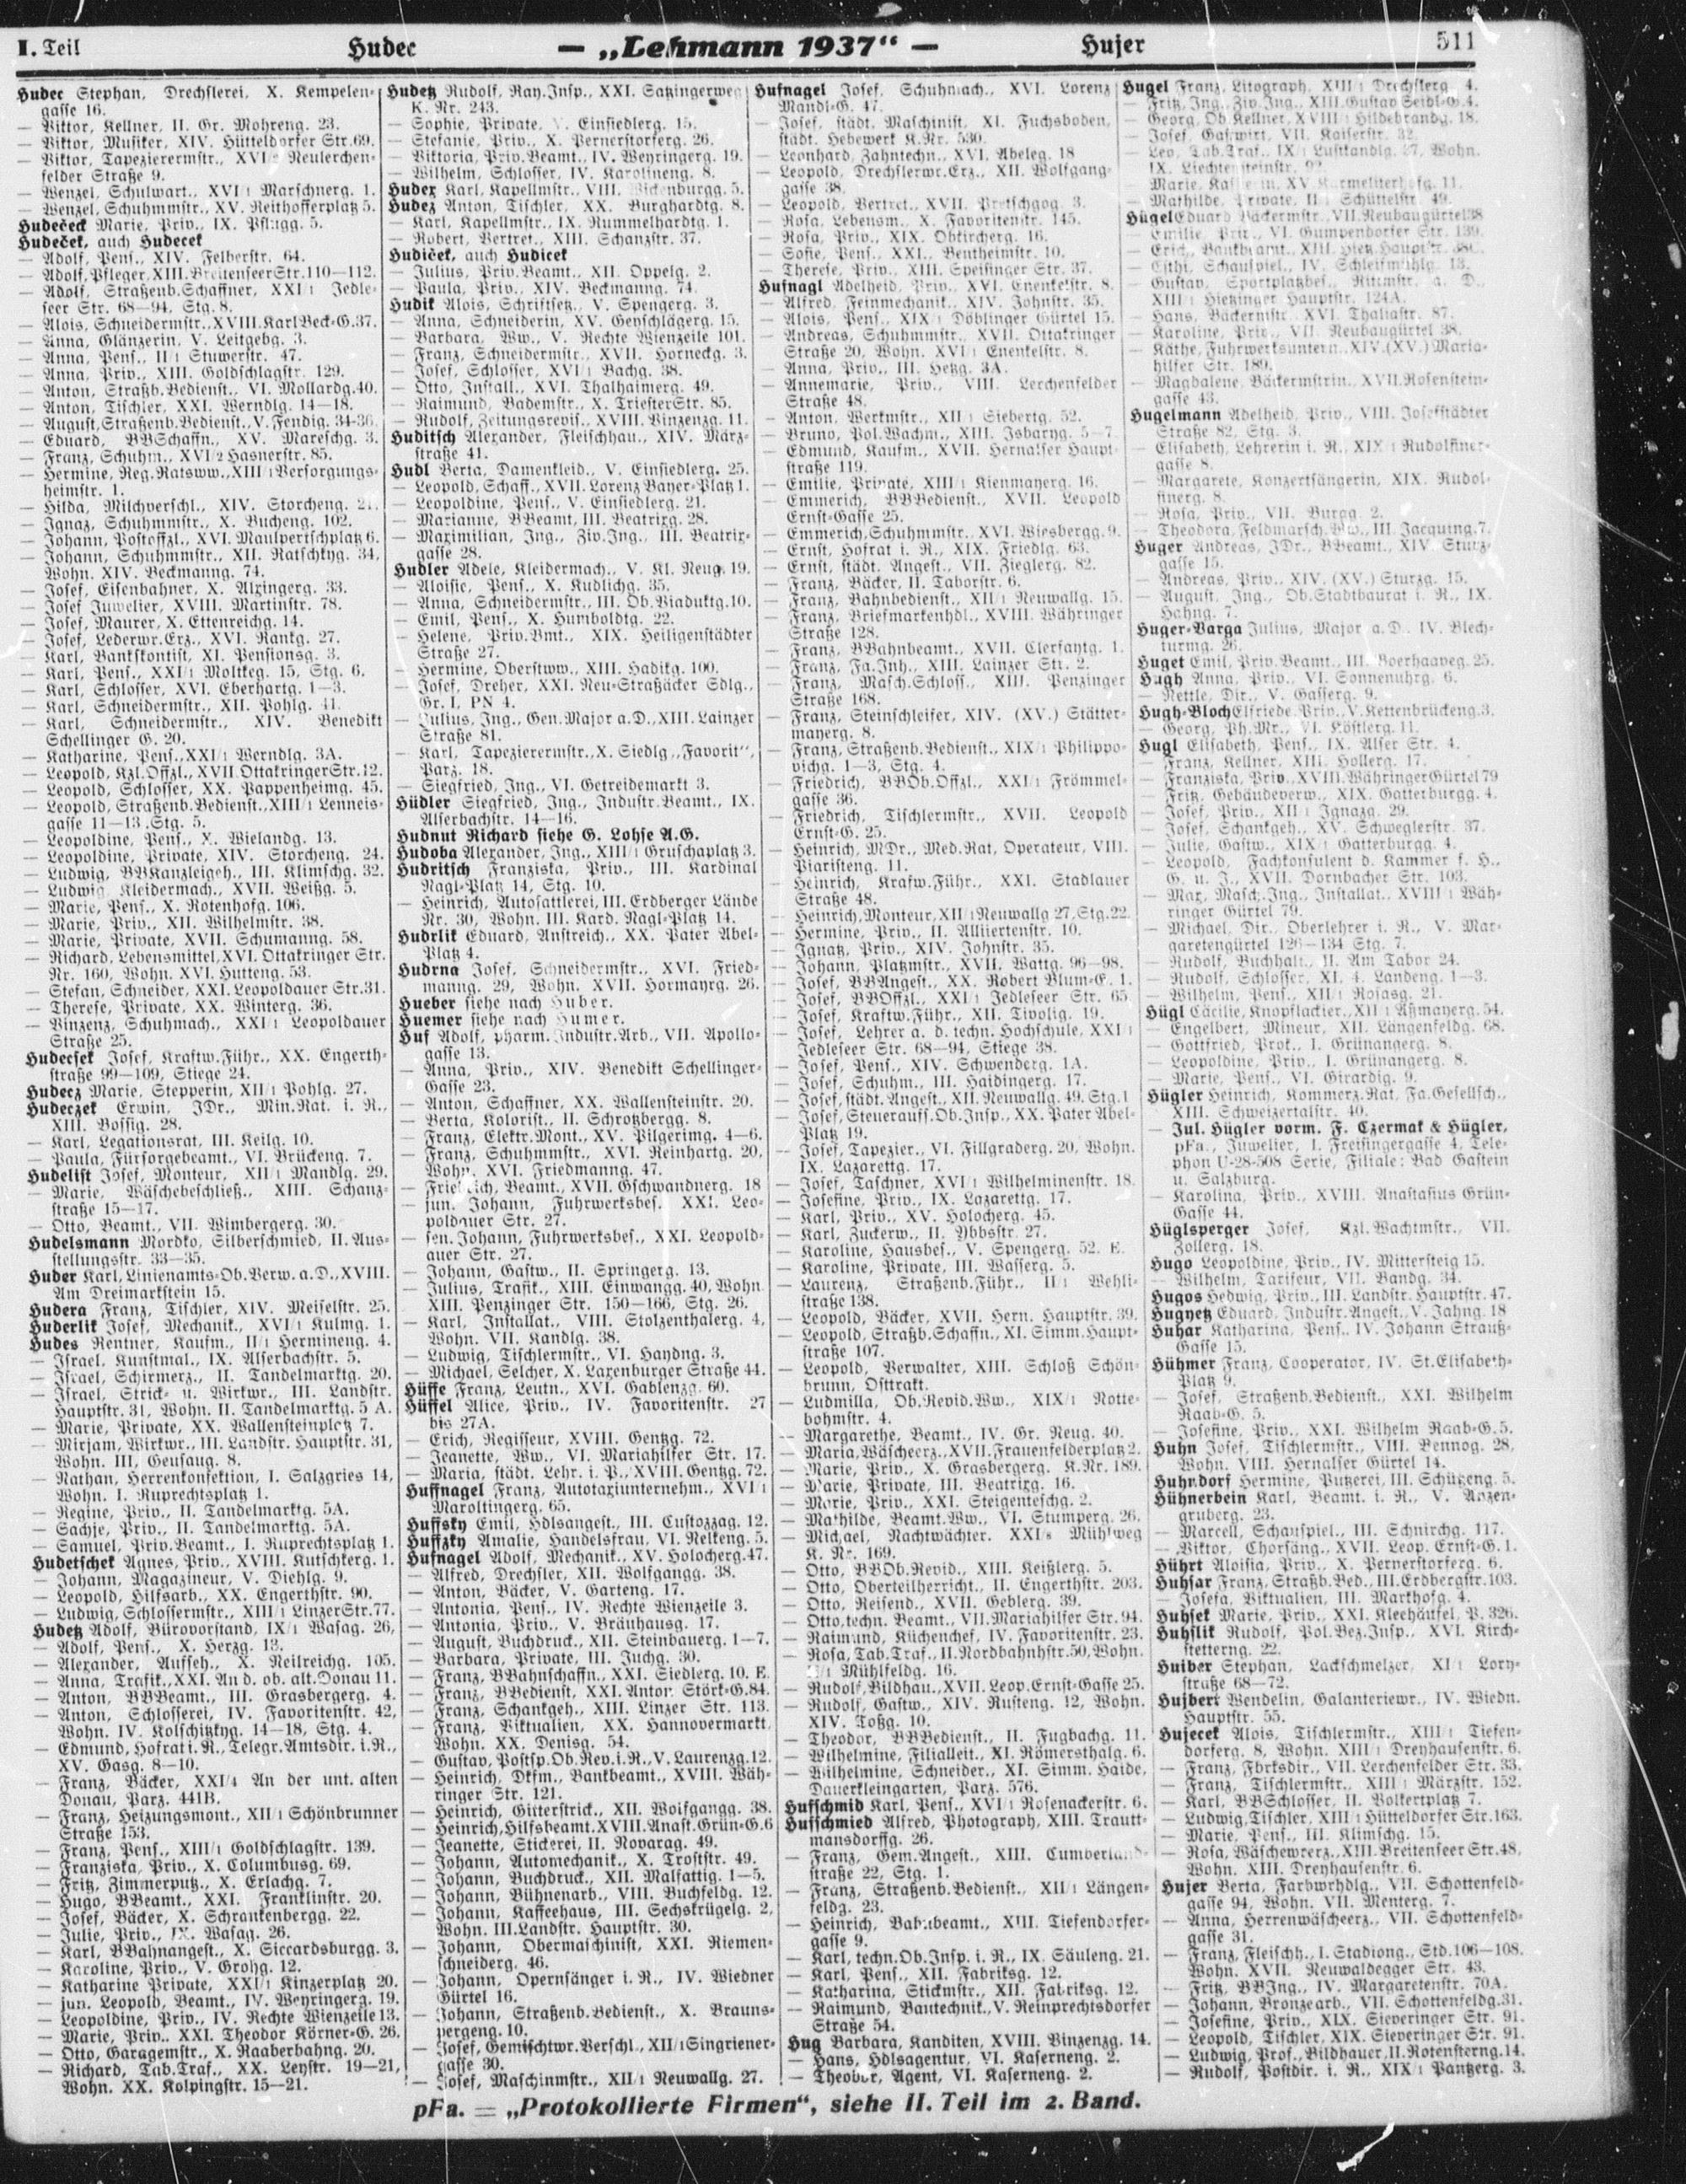 I. Teil
Hudec
— „Lehmann 1937“ —
Hujer
511
Hudec Stephan, Drechslerei, X. Kempelen-
gasse 16.
— Viktor, Kellner, II. Gr. Mohreng. 23.
— Viktor, Musiker, XIV. Hütteldorfer Str. 69.
— Viktor, Tapezierermstr., XVI/2 Neulerchen-
felder Straße 9.
— Wenzel, Schulwart., XVI/1 Marschnerg. 1.
— Wenzel, Schuhmmstr., XV. Reithofferplatz 5.
Hudečeck Marie, Priv., IX. Pflugg. 5.
Hudeček, auch Hudecek
— Adolf, Pens., XIV. Felberstr. 64.
— Adolf, Pfleger, XIII. Breitenseer Str. 110—112.
— Adolf, Straßenb.Schaffner, XXI/1 Jedle-
seer Str. 68—94, Stg. 8.
— Alois, Schneidermstr., XVIII. Karl Beck-G. 37.
— Anna, Glänzerin, V. Leitgebg. 3.
— Anna, Pens., II/1 Stuwerstr. 47.
— Anna, Priv., XIII. Goldschlagstr. 129.
— Anton, Straßb.Bedienst., VI. Mollardg. 40.
— Anton, Tischler, XXI. Werndlg. 14—18.
— August, Straßenb.Bedienst., V. Fendig. 34-36.
— Eduard, BBSchaffn., XV. Mareschg. 3.
— Franz, Schuhm., XVI/2 Hasnerstr. 85.
— Hermine, Reg.Ratsww., XIII/1 Versorgungs-
heimstr. 1.
— Hilda, Milchverschl., XIV. Storcheng.
— Ignaz, Schuhmmstr., X. Bucheng. 102.
— Johann, Postoffzl., XVI. Maulpertschplatz 6.
— Johann, Schuhmmstr., XII. Ratschkyg. 34,
Wohn. XIV. Beckmanng. 74.
— Josef, Eisenbahner, X. Alxingerg. 33.
— Josef Juwelier, XVIII. Martinstr. 78.
— Josef, Maurer, X. Ettenreichg. 14.
— Josef, Lederwr.Erz., XVI. Rankg. 27.
— Karl, Bankskontist, XI. Pensionsg. 3.
— Karl, Pens., XXI/1 Moltkeg. 15, Stg. 6.
— Karl, Schlosser, XVI. Eberhartg. 1—3.
— Karl, Schneidermstr., XII. Pohlg. 41.
— Karl, Schneidermstr., XIV. Benedikt
Schellinger G. 20.
— Katharine, Pens., XXI/1 Werndlg. 3A.
— Leopold, Kzl.Offzl., XVII. Ottakringer Str. 12.
— Leopold, Schlosser, XX. Pappenheimg. 45.
— Leopold, Straßenb.Bedienst., XIII/1 Lenneis-
gasse 11—13, Stg. 5.
— Leopoldine, Pens., X. Wielandg. 13.
— Leopoldine, Private, XIV. Storcheng. 24.
— Ludwig, BBKanzleigeh., III. Klimschg. 32.
— Ludwig Kleidermach., XVII. Weißg. 5.
— Marie, Pens., X. Rotenhofg. 106.
— Marie, Priv., XII. Wilhelmstr. 38.
— Marie, Private, XVII. Schumanng. 58.
— Richard, Lebensmittel, XVI. Ottakringer Str.
Nr. 160, Wohn. XVI. Hutteng. 53.
— Stefan, Schneider, XXI. Leopoldauer Str. 31.
— Therese, Private, XX. Winterg. 36.
— Vinzenz, Schuhmach., XXI/1 Leopoldauer
Straße 25.
Hudecsek Josef, Kraftw.Führ., XX. Engerth-
straße 99—109, Stiege 24.
Hudecz Marie, Stepperin, XII/1 Pohlg. 27.
Hudeczek Erwin, JDr., Min.Rat. i. R.,
XIII. Bossig. 28.
— Karl, Legationsrat, III. Keilg. 10.
— Paula, Fürsorgebeamt., VI. Brückeng. 7.
Hudelist Josef, Monteur, XII/1 Mandlg. 29.
— Marie, Wäschebeschließ., XIII. Schanz-
straße 15—17.
— Otto, Beamt., VII. Wimbergerg. 30.
Hudelsmann Mordko, Silberschmied, II. Aus-
stellungsstr. 33—35.
Huder Karl, Linienamts-Ob.Verw. a. D., XVIII.
Am Dreimarkstein 15.
Hudera Franz, Tischler, XIV. Meiselstr. 25.
Huderlik Josef, Mechanik., XVI/1 Kulmg. 1.
Hudes Rentner, Kaufm., II/1 Hermineng. 4.
— Israel, Kunstmal., IX. Alserbachstr. 5.
— Israel, Schirmerz., II. Tandelmarktg. 20.
— Israel, Strick- u. Wirkwr., III. Landstr.
Hauptstr. 31, Wohn. II. Tandelmarktg. 5 A.
— Marie, Private, XX. Wallensteinplatz 7.
— Mirjam, Wirkwr., III. Landstr. Hauptstr. 31,
Wohn. III, Geusaug. 8.
— Nathan, Herrenkonfektion, I. Salzgries 14,
Wohn. I. Ruprechtsplatz 1.
— Regine, Priv., II. Tandelmarktg. 5A.
— Sachje, Priv., II. Tandelmarktg. 5A.
— Samuel, Priv.Beamt., I. Ruprechtsplatz 1.
Hudetschek Agnes, Priv., XVIII. Kutschkerg. 1.
— Johann, Magazineur, V. Diehlg. 9.
— Leopold, Hilfsarb., XX. Engerthstr. 90.
— Ludwig, Schlossermstr., XIII/1 Linzer Str. 77.
Hudetz Adolf, Bürovorstand, IX/1 Wasag. 26,
— Adolf, Pens., X. Herzg. 13.
— Alexander, Aufseh., X. Neilreichg. 105.
— Anna, Trafik., XXI. An d. ob. alt. Donau 11.
— Anton, BBBeamt., III. Grasbergerg. 4.
— Anton, Schlosserei, IV. Favoritenstr. 42,
Wohn. IV. Kolschitzkyg. 14—18, Stg. 4.
— Edmund, Hofrat i. R., Telegr.Amtsdir. i. R.,
XV. Gasg. 8—10.
— Franz, Bäcker, XXI/4 An der unt. alten
Donau, Parz. 441B.
— Franz, Heizungsmont., XII/1 Schönbrunner
Straße 153.
— Franz, Pens., XIII/1 Goldschlagstr. 139.
— Franziska, Priv., X. Columbusg. 69.
— Fritz, Zimmerputz., X. Erlachg. 7.
— Hugo, BBeamt., XXI. Franklinstr. 20.
— Josef, Bäcker, X. Schrankenbergg. 22.
— Julie, Priv., IX. Wasag. 26.
— Karl, BBahnangest., X. Siccardsburgg. 3.
— Karoline, Priv., V. Grohg. 12.
— Katharine Private, XXI/1 Kinzerplatz 20.
— jun. Leopold, Beamt., IV. Weyringerg. 19.
— Leopoldine, Priv., IV. Rechte Wienzeile 13.
— Marie, Priv., XXI. Theodor Körner-G. 26.
— Otto, Garagemstr., X. Raaberbahng. 20.
— Richard, Tab.Traf., XX. Leystr. 19—21,
Wohn. XX. Kolpingstr. 15—21.
Hudetz Rudolf, Ray.Insp., XXI. Satzingerweg
K. Nr. 243.
— Sophie, Private, V. Einsiedlerg. 15.
— Stefanie, Priv., X. Pernerstorferg. 26.
— Viktoria, Priv.Beamt., IV. Weyringerg. 19.
— Wilhelm, Schlosser, IV. Karolineng. 8.
Hudex Karl, Kapellmstr., VIII. Wickenburgg. 5.
Hudez Anton, Tischler, XX. Burghardtg. 8.
— Karl, Kapellmstr., IX. Rummelhardtg. 1.
— Robert, Vertret., XIII. Schanzstr. 37.
Hudiček, auch Hudicek
— Julius, Priv.Beamt., XII. Oppelg. 2.
— Paula, Priv., XIV. Beckmanng. 74.
Hudik Alois, Schriftsetz., V. Spengerg. 3.
— Anna, Schneiderin, XV. Geyschlägerg. 15.
— Barbara, Ww., V. Rechte Wienzeile 101.
— Franz, Schneidermstr., XVII. Horneckg. 3.
— Josef, Schlosser, XVI/1 Bachg. 38.
— Otto, Install., XVI. Thalhaimerg. 49.
— Raimund, Bademstr., X. Triester Str. 85.
— Rudolf, Zeitungsrevis., XVIII. Vinzenzg. 11.
Huditsch Alexander, Fleischhau., XIV. März-
straße 41.
Hudl Berta, Damenkleid., V. Einsiedlerg. 25.
— Leopold, Schaff., XVII. Lorenz Bayer-Platz 1.
— Leopoldine, Pens., V. Einsiedlerg. 21.
— Marianne, BBeamt, III. Beatrixg. 28.
— Maximilian, Ing., Ziv.Ing., III. Beatrix-
gasse 28.
Hudler Adele, Kleidermach., V. Kl. Neug. 19.
— Aloisie, Pens., X. Kudlichg. 35.
— Anna, Schneidermstr., III. Ob. Viaduktg. 10.
— Emil, Pens., X. Humboldtg. 22.
— Helene, Priv.Bmt., XIX. Heiligenstädter
Straße 27.
— Hermine, Oberstww., XIII. Hadikg. 100.
— Josef, Dreher, XXI. Neu-Straßäcker Sdlg.,
Gr. I, PN 4.
— Julius, Ing., Gen.Major a. D., XIII. Lainzer
Straße 81.
— Karl, Tapezierermstr., X. Siedlg „Favorit“,
Parz. 18.
— Siegfried, Ing., VI. Getreidemarkt 3.
Hüdler Siegfried, Ing., Industr.Beamt., IX.
Alserbachstr. 14—16.
Hudnut Richard siehe G. Lohse A.G.
Hudoba Alexander, Ing., XIII/1 Gruschaplatz 3.
Hudritsch Franziska, Priv., III. Kardinal
Nagl-Platz 14, Stg. 10.
— Heinrich, Autosattlerei, III. Erdberger Lände
Nr. 30, Wohn. III. Kard. Nagl-Platz 14.
Hudrlik Eduard, Anstreich., XX. Pater Abel-
Platz 4.
Hudrna Josef, Schneidermstr., XVI. Fried-
manng. 29, Wohn. XVII. Hormayrg. 26.
Hueber siehe nach Huber.
Huemer siehe nach Humer.
Huf Adolf, pharm. Industr.Arb., VII. Apollo-
gasse 13.
— Anna, Priv., XIV. Benedikt Schellinger-
Gasse 23.
— Anton, Schaffner, XX. Wallensteinstr. 20.
— Berta, Kolorist., II. Schrotzbergg. 8.
— Franz, Elektr.Mont., XV. Pilgerimg. 4—6.
— Franz, Schuhmmstr., XVI. Reinhartg. 20,
Wohn. XVI. Friedmanng. 47.
— Friedrich, Beamt., XVII. Gschwandnerg. 18
— jun. Johann, Fuhrwerksbes., XXI. Leo-
poldauer Str. 27.
— sen. Johann, Fuhrwerksbes., XXI. Leopold-
auer Str. 27.
— Johann, Gastw., II. Springerg. 13.
— Julius, Trafik., XIII. Einwangg. 40, Wohn
XIII. Penzinger Str. 150—166, Stg. 26.
— Karl, Installat., VIII. Stolzenthalerg. 4,
Wohn. VII. Kandlg. 38.
— Ludwig, Tischlermstr., VI. Haydng. 3.
— Michael, Selcher, X. Laxenburger Straße 44.
Hüffe Franz, Leutn., XVI. Gablenzg. 60.
Hüffel Alice, Priv., IV. Favoritenstr. 27
bis 27A.
— Erich, Regisseur, XVIII. Gentzg. 72.
— Jeanette, Ww., VI. Mariahilfer Str. 17.
— Maria, städt. Lehr. i. P., XVIII. Gentzg. 72.
Huffnagel Franz, Autotaxiunternehm., XVI/1
Maroltingerg. 65.
Huffsky Emil, Hdlsangest., III. Custozzag. 12.
Huffzky Amalie, Handelsfrau, VI. Nelkeng. 5.
Hufnagel Adolf, Mechanik., XV. Holocherg. 47.
— Alfred, Drechsler, XII. Wolfgangg. 38.
— Anton, Bäcker, V. Garteng. 17.
— Antonia, Pens., IV. Rechte Wienzeile 3.
— Antonia, Priv., V. Bräuhausg. 17.
— August, Buchdruck., XII. Steinbauerg. 1—7.
— Barbara, Private, III. Juchg. 30.
— Franz, BBahnschaffn., XXI. Siedlerg. 10. E.
— Franz, BBedienst, XXI. Anton Störk-G. 84.
— Franz, Schankgeh., XIII. Linzer Str. 113.
— Franz, Viktualien, XX. Hannovermarkt,
Wohn. XX. Denisg. 54.
— Gustav, Postsp.Ob.Rev. i. R., V. Laurenzg. 12.
— Heinrich, Dkfm., Bankbeamt., XVIII. Wäh-
ringer Str. 121.
— Heinrich, Gitterstrick., XII. Wolfgangg. 38.
— Heinrich, Hilfsbeamt. XVIII. Anast. Grün-G. 6
— Jeanette, Stickerei, II. Novarag. 49.
— Johann, Automechanik., X. Troststr. 49.
— Johann, Buchdruck., XII. Malfattig. 1—5.
— Johann, Bühnenarb., VIII. Buchfeldg. 12.
— Johann, Kaffeehaus, III. Sechskrügelg. 2,
Wohn. III. Landstr. Hauptstr. 30.
— Johann, Obermaschinist, XXI. Riemen-
schneiderg. 46.
— Johann, Opernsänger i. R., IV. Wiedner
Gürtel 16.
— Johann, Straßenb.Bedienst., X. Brauns-
pergeng. 10.
— Josef, Gemischtwr.Verschl., XII/1 Singriener-
gasse 30.
— Josef, Maschinmstr., XII/1 Neuwallg. 27.
Hufnagel Josef, Schuhmach., XVI. Lorenz
Mandl-G. 47.
— Josef, städt. Maschinist, XI. Fuchsboden,
städt. Hebewerk K.Nr. 530.
— Leonhard, Zahntechn., XVI. Abeleg. 18
— Leopold, Drechslerwr.Erz., XII. Wolfgang-
gasse 38.
— Leopold, Vertret., XVII. Pretschgog. 3.
— Rosa, Lebensm., X. Favoritenstr. 145.
— Rosa, Priv., XIX. Obkircherg. 16.
— Sofie, Pens., XXI. Bentheimstr. 10.
— Therese, Priv., XIII. Speisinger Str. 37.
Hufnagl Adelheid, Priv., XVI. Enenkelstr. 8.
— Alfred, Feinmechanik., XIV. Johnstr. 35.
— Alois, Pens., XIX/1 Döblinger Gürtel 15.
— Andreas, Schuhmmstr., XVII. Ottakringer
Straße 20, Wohn. XVI/1 Enenkelstr. 8.
— Anna, Priv., III. Hetzg. 3A.
— Annemarie, Priv., VIII. Lerchenfelder
Straße 48.
— Anton, Werkmstr., XII/1 Siebertg. 52.
— Bruno, Pol.Wachm., XIII. Isbaryg. 5—7
— Edmund, Kaufm., XVII. Hernalser Haupt-
straße 119.
— Emilie, Private, XIII/1 Kienmayerg. 16.
— Emmerich, BBBedienst., XVII. Leopold
Ernst-Gasse 25.
— Emmerich, Schuhmmstr., XVI. Wiesbergg. 9.
— Ernst, Hofrat i. R., XIX. Friedlg. 63.
— Ernst, städt. Angest., VII. Zieglerg. 82.
— Franz, Bäcker, II. Taborstr. 6.
— Franz, Bahnbedienst., XII/1 Neuwallg. 15.
— Franz, Briefmarkenhdl., XVIII. Währinger
Straße 128.
— Franz, BBahnbeamt., XVII. Clerfaytg. 1.
— Franz, Fa.Inh., XIII. Lainzer Str. 2.
— Franz, Masch.Schloss., XIII. Penzinger
Straße 168.
— Franz, Steinschleifer, XIV. (XV.) Stätter-
mayerg. 8.
— Franz, Straßenb.Bedienst., XIX/1 Philippo-
vichg. 1—3, Stg. 4.
— Friedrich, BBOb.Offzl., XXI/1 Frömmel-
gasse 36.
— Friedrich, Tischlermstr., XVII. Leopold
Ernst-G. 25.
— Heinrich, MDr., Med.Rat, Operateur, VIII.
Piaristeng. 11.
— Heinrich, Kraftw.Führ., XXI. Stadlauer
Straße 48.
— Heinrich, Monteur, XII/1 Neuwallg 27, Stg. 22.
— Hermine, Priv., II. Alliiertenstr. 10.
— Ignatz, Priv., XIV. Johnstr. 35.
— Johann, Platzmstr., XVII. Wattg. 96—98.
— Josef, BBAngest., XX. Robert Blum-G. 1.
— Josef, BBOffzl., XXI/1 Jedleseer Str. 65
— Josef, Kraftw.Führ., XII. Tivolig. 19.
— Josef, Lehrer a. d. techn. Hochschule, XXI/1
Jedleseer Str. 68—94, Stiege 38.
— Josef, Pens., XIV. Schwenderg. 1A.
— Josef, Schuhm., III. Haidingerg. 17.
— Josef, städt. Angest., XII. Neuwallg. 49. Stg. 1
— Josef, Steueraufs.Ob.Insp., XX. Pater Abel-
Platz 19.
— Josef, Tapezier, VI. Fillgraderg. 20, Wohn.
IX. Lazarettg. 17.
— Josef, Taschner, XVI/1 Wilhelminenstr. 18.
— Josefine, Priv., IX. Lazarettg. 17.
— Karl, Priv., XV. Holocherg. 45.
— Karl, Zuckerw., II. Ybbsstr. 27.
— Karoline, Hausbes., V. Spengerg. 52. E.
— Karoline, Private, III. Wasserg. 5.
— Laurenz, Straßenb.Führ., II/1 Wehli-
straße 138.
— Leopold, Bäcker, XVII. Hern. Hauptstr. 39.
— Leopold, Straßb.Schaffn., XI. Simm. Haupt-
straße 107.
— Leopold, Verwalter, XIII. Schloß Schön-
brunn, Osttrakt.
— Ludmilla, Ob.Revid.Ww., XIX/1 Notte-
bohmstr. 4.
— Margarethe, Beamt., IV. Gr. Neug. 40.
— Maria, Wäscheerz., XVII. Frauenfelderplatz 2.
— Marie, Priv., X. Grasbergerg. K.Nr. 189.
— Marie, Private, III. Beatrixg. 16.
— Marie, Priv., XXI. Steigenteschg. 2.
— Mathilde, Beamt.Ww., VI. Stumperg. 26.
— Michael, Nachtwächter, XXI/8 Mühlweg
K. Nr. 169.
— Otto, BBOb.Revid., XIII. Keißlerg. 5.
— Otto, Oberteilherricht., II. Engerthstr. 203.
— Otto, Reisend., XVII. Geblerg. 39.
— Otto, techn. Beamt., VII. Mariahilfer Str. 94.
— Raimund, Küchenchef, IV. Favoritenstr. 23.
— Rosa, Tab.Traf., II. Nordbahnstr. 50, Wohn.
Mühlfeldg. 16.
— Rudolf, Bildhau., XVII. Leop. Ernst-Gasse 25.
— Rudolf, Gastw., XIV. Rusteng. 12, Wohn.
XIV. Toßg. 10.
— Theodor, BBBedienst., II. Fugbachg. 11.
— Wilhelmine, Filialleit., XI. Römersthalg. 6.
— Wilhelmine, Schneider., XI. Simm. Haide,
Dauerkleingarten, Parz. 576.
Hufschmid Karl, Pens., XVI/1 Rosenackerstr. 6.
Hufschmied Alfred, Photograph, XIII. Trautt-
mansdorffg. 26.
— Franz, Gem.Angest., XIII. Cumberland-
straße 22, Stg. 1.
— Franz, Straßenb.Bedienst., XII/1 Längen-
feldg. 23.
— Heinrich, Bahnbeamt., XIII. Tiefendorfer-
gasse 9.
— Karl, techn.Ob.Insp. i. R., IX. Säuleng. 21.
— Karl, Pens., XII. Fabriksg. 12.
— Katharina, Stickmstr., XII. Fabriksg. 12.
— Raimund, Bautechnik., V. Reinprechtsdorfer
Straße 54.
Hug Barbara, Kanditen, XVIII. Vinzenzg. 14.
— Hans, Hdlsagentur, VI. Kaserneng. 2.
— Theodor, Agent, VI. Kaserneng. 2.
Hugel Franz, Litograph, XIII/1 Drechslerg. 4.
— Fritz, Ing., Ziv.Ing., XIII. Gustav Seidl-G. 4.
— Georg, Ob.Kellner, XVIII/1 Hildebrandg. 18.
— Josef, Gastwirt, VII. Kaiserstr. 32.
— Leo, Tab.Traf., IX/1 Lustkandlg. 27, Wohn.
IX. Liechtensteinstr. 92.
— Marie, Kassierin, XV. Karmeliterhofg. 11.
— Mathilde, Private, II/1 Schüttelstr. 49.
Hügel Eduard Bäckermstr., VII. Neubaugürtel 38
— Emilie, Priv., VI. Gumpendorfer Str. 139.
— Erich, Bankbeamt., XIII. Hietz. Hauptstr.
— Lithi, Schauspiel., IV. Schleifmühlg. 13.
— Gustav, Sportplatzbes., Rittmstr. a. D.,
XIII/1 Hietzinger Hauptstr. 124A.
— Hans, Bäckermstr. XVI. Thaliastr. 87.
— Karoline, Priv., VII. Neubaugürtel 38.
— Käthe, Fuhrwerksuntern., XIV. (XV.) Maria-
hilfer Str. 189.
— Magdalene, Bäckermstrin., XVII. Rosenstein-
gasse 43.
Hugelmann Adelheid, Priv., VIII. Josefstädter
Straße 82, Stg. 3.
— Elisabeth, Lehrerin i. R., XIX/1 Rudolfiner-
gasse 8.
— Margarete, Konzertsängerin, XIX. Rudol-
finerg. 8.
— Rosa, Priv., VII. Burgg. 2.
— Theodora, Feldmarsch.Ww., III. Jacquing. 7.
Huger Andreas, JDr., BBeamt., XIV. Sturz-
gasse 15.
— Andreas, Priv., XIV. (XV.) Sturzg. 15.
— August, Ing., Ob.Stadtbaurat i. R., IX.
Hahng. 7.
Huger-Varga Julius, Major a. D., IV. Blech-
turmg. 26.
Huget Emil, Priv.Beamt., III. Boerhaaveg. 25.
Hugh Anna, Priv., VI. Sonnenuhrg. 6.
— Nettie, Dir., V. Gasserg. 9.
Hugh-Bloch Elfriede, Priv., V. Kettenbrückeng. 3.
— Georg, Ph.Mr., VI. Köstlerg. 11.
Hugl Elisabeth, Pens., IX. Alser Str. 4.
— Franz, Kellner, XIII. Hollerg. 17.
— Franziska, Priv., XVIII. Währinger Gürtel 79
— Fritz, Gebäudeverw., XIX. Gatterburgg. 4.
— Josef, Priv., XII/1 Ignazg. 29.
— Josef, Schankgeh., XV. Schweglerstr. 37.
— Julie, Gastw., XIX/1 Gatterburgg. 4.
— Leopold, Fachkonsulent d. Kammer f. H.,
G. u. I., XVII. Dornbacher Str. 103.
— Max, Masch.Ing., Installat., XVIII/1 Wäh-
ringer Gürtel 79.
— Michael, Dir., Oberlehrer i. R., V. Mar-
garetengürtel 126—134 Stg. 7.
— Rudolf, Buchhalt., II. Am Tabor 24.
— Rudolf, Schlosser, XI. 4. Landeng. 1—3.
— Wilhelm, Pens., XII/1 Rosasg. 21.
Hügl Cäcilie, Knopflackier., XII/1 Aßmayerg. 54.
— Engelbert, Mineur, XII. Längenfeldg. 68.
— Gottfried, Prok., I. Grünangerg. 8.
— Leopoldine, Priv., I. Grünangerg. 8.
— Marie, Pens., VI. Girardig. 9.
Hügler Heinrich, Kommerz.Rat, Fa.Gesellsch.,
XIII. Schweizertalstr. 40.
— Jul. Hügler vorm. F. Czermak & Hügler,
pFa., Juwelier, I. Freisingergasse 4, Tele-
phon U-28-508 Serie, Filiale: Bad Gastein
u. Salzburg.
— Karolina, Priv., XVIII. Anastasius Grün-
Gasse 44.
Hüglsperger Josef, Kzl.Wachtmstr., VII.
Zollerg. 18.
Hugo Leopoldine, Priv., IV. Mittersteig 15.
— Wilhelm, Tarifeur, VII. Bandg. 34.
Hugos Hedwig, Priv., III. Landstr. Hauptstr. 47.
Hugyetz Eduard, Industr.Angest., V. Jahng. 18
Huhar Katharina, Pens., IV. Johann Strauß-
Gasse 15.
Hühmer Franz, Cooperator, IV. St.Elisabeth-
Platz 9.
— Josef, Straßenb.Bedienst., XXI. Wilhelm
Raab-G. 5.
— Josefine, Priv., XXI. Wilhelm Raab-G. 5.
Huhn Josef, Tischlermstr., VIII. Bennog. 28,
Wohn. VIII. Hernalser Gürtel 14.
Huhndorf Hermine, Putzerei, III. Schützeng. 5.
Hühnerbein Karl, Beamt. i. R., V. Anzen-
gruberg. 23.
— Marcell, Schauspiel., III. Schnirchg. 117.
— Viktor, Chorsäng., XVII. Leop. Ernst-G. 1.
Hührt Aloisia, Priv., X. Pernerstorferg. 6.
Huhsar Franz, Straßb.Bed., III. Erdbergstr. 103.
— Josefa, Viktualien, III. Markhofg. 4.
Huhsek Marie, Priv., XXI. Kleehäufel, P. 326.
Huhslik Rudolf, Pol.Bez.Insp., XVI. Kirch-
stetterng. 22.
Huiber Stephan, Lackschmelzer, XI/1 Lory-
straße 68—72.
Hujbert Wendelin, Galanteriewr., IV. Wiedn.
Hauptstr. 55.
Hujecek Alois, Tischlermstr., XIII/1 Tiefen-
dorferg. 8, Wohn. XIII/1 Dreyhausenstr. 6.
— Franz, Fbrksdir., VII. Lerchenfelder Str. 33.
— Franz, Tischlermstr., XIII/1 Märzstr. 152.
— Karl, BBSchlosser, II. Volkertplatz 7.
— Ludwig, Tischler, XIII/1 Hütteldorfer Str. 163.
— Marie, Pens., III. Klimschg. 15.
— Rosa, Wäschewrerz., XIII. Breitenseer Str. 48,
Wohn. XIII. Dreyhausenstr. 6.
Hujer Berta, Farbwrhdlg., VII. Schottenfeld-
gasse 94, Wohn. VII. Menterg. 7.
— Anna, Herrenwäscheerz., VII. Schottenfeld-
gasse 31.
— Franz, Fleischh., I. Stadiong., Std. 106—108.
Wohn. XVII. Neuwaldegger Str. 43.
— Fritz, BBIng., IV. Margaretenstr. 70A.
— Johann, Bronzearb., VII. Schottenfeldg. 31.
— Josefine, Priv., XIX. Sieveringer Str. 91.
— Leopold, Tischler, XIX. Sieveringer Str. 91.
— Ludwig, Prof., Bildhauer, II. Rotensterng. 14.
— Rudolf, Postdir. i. R., XIX/1 Pantzerg. 3.
pFa. = „Protokollierte Firmen“, siehe II. Teil im 2. Band.